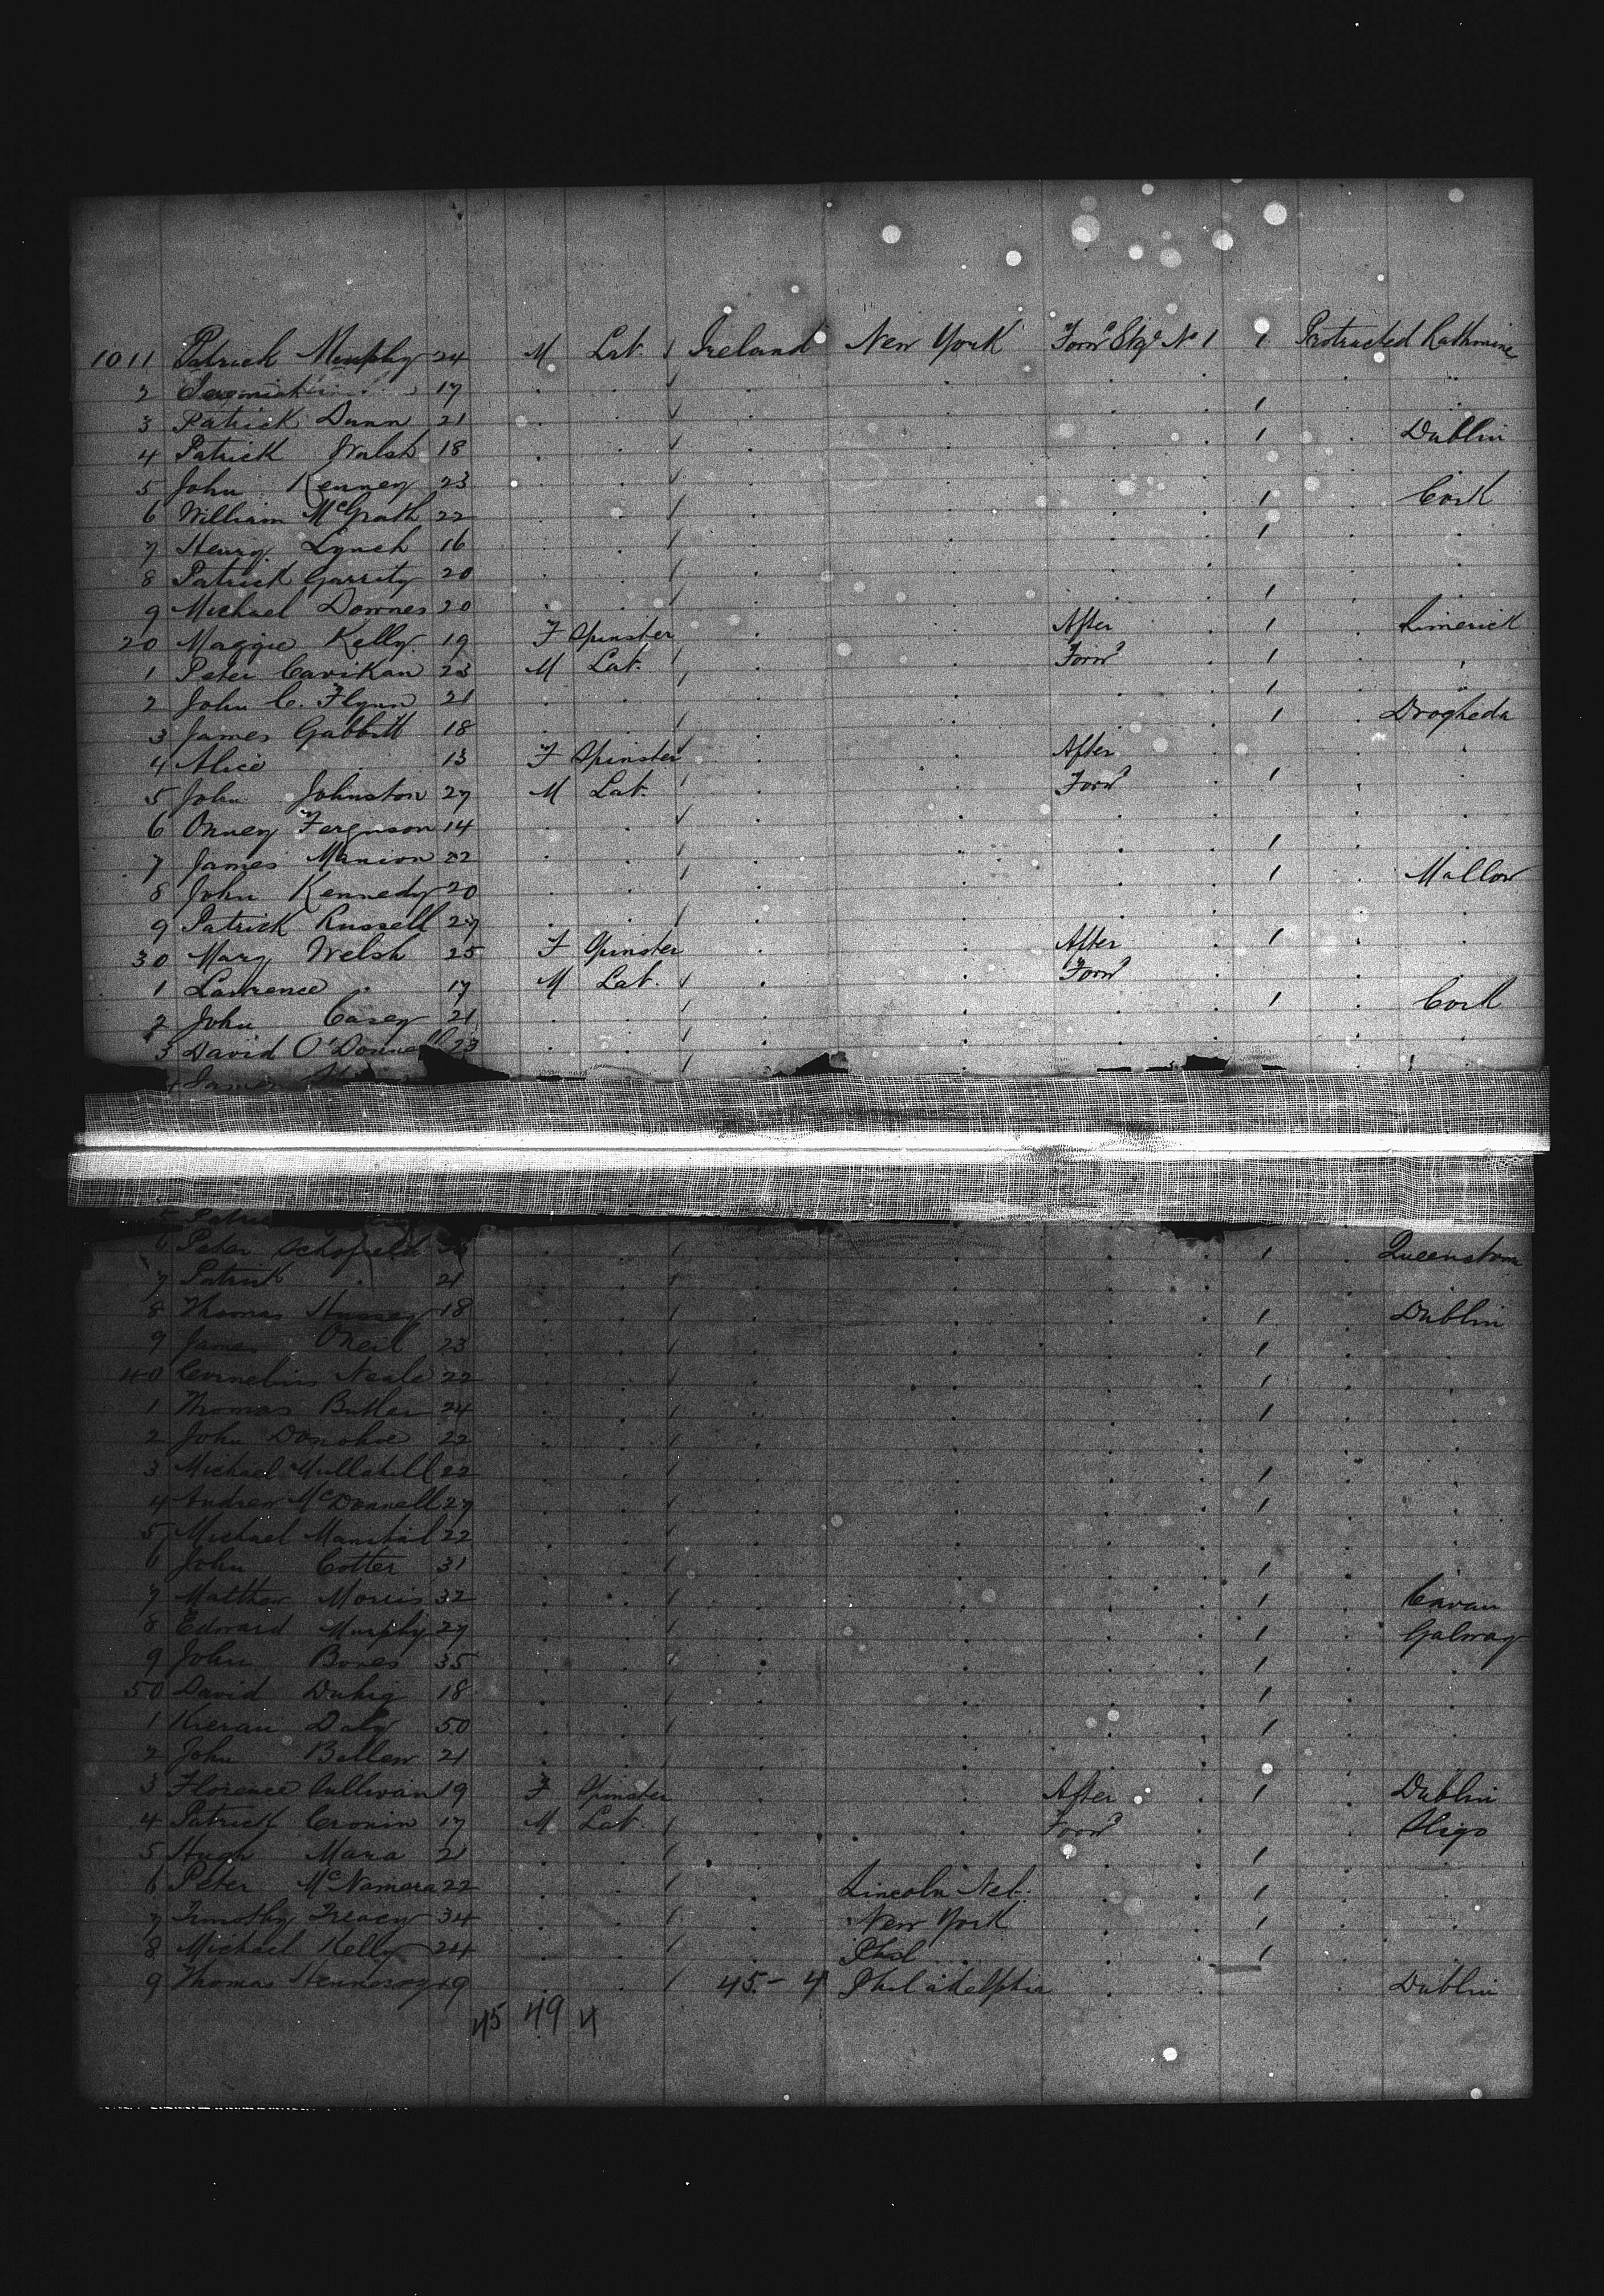 1011 Patrick Murphy 24 M Lab. / Ireland New York Forwd Stge No 1 1 Protracted Rathmine
2 Jeremiah 17
3 Patrick Dunn 21 1
4 Patrick Walsh 18 1 Dublin
5 John Kenney 23
6 William McGrath 22 1 Cork
7 Henry Lynch 16 1
8 Patrick Garrity 20
9 Michael Downes 20 1
20 Maggie Kelly 19 F Spinster After 1 Limerick
1 Peter Cavikan 23 M Lab. Forwd 1
2 John C. Flynn 21 1
3 James Gabbitt 18 1 Drogheda
4 Alice 13 F Spinster After
5 John Johnston 27 M Lab. Forwd 1
6 Onney Ferguson 14
7 James Manion 22 1
8 John Kennedy 20 1 Mallow
9 Patrick Russell 27
30 Mary Welsh 25 F Spinster After 1
1 Lawrence " 17 M Lab. Forwd
2 John Casey 21 1 Cork
3 David O'Donnell 23
4 James
5 Patri
6 Peter Schofield 1 Queenstown
7 Patrick 21
8 Thomas Hussey 18 1 Dublin
9 James ONeil 23 1
40 Cornelius Neale 22 1
1 Thomas Butler 24 1
2 John Donohoe 22
3 Michael Mullahill 22 1
4 Andrew McDonnell 27 1
5 Michael 22
6 John Cotter 31 1
7 Matthew Morris 32 1 Cavan
8 Edward Murphy 27 1 Galway
9 John Bones 35 1
50 David Duhig 18 1
1 Kieran Daly 50 1
2 John Bellew 21
3 Florence Sullivan 19 F Spinster After 1 Dublin
4 Patrick Cronin 17 M Lab. Forwd Sligo
5 Hugh Mara 21 1
6 Peter McNamara 22 Lincoln Neb. 1
7 Timothy Treacy 34 New York 1
8 Michael Kelly 24 Phil 1
9 Thomas Hennessy 19 45 - 4 Philadelphia Dublin
45 49 4